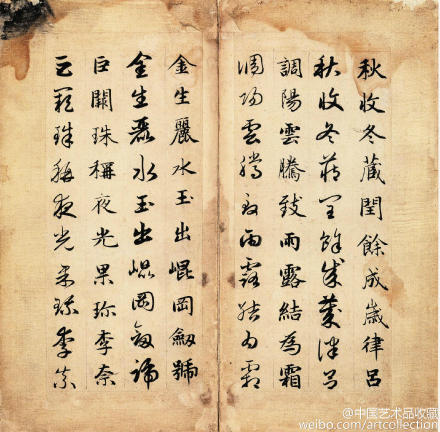 秋收冬藏閏餘成歲律呂
秋收冬藏閏餘成歲律呂
調陽雲騰致雨露結為霜
調陽雲騰致雨露結為霜
金生麗水玉出崐岡劔號
金生麗水玉出崐岡劔號
巨闕珠稱夜光果珍李奈
巨闕珠稱夜光果珍李奈
@中国艺术品收藏
weibo.com/artcollection